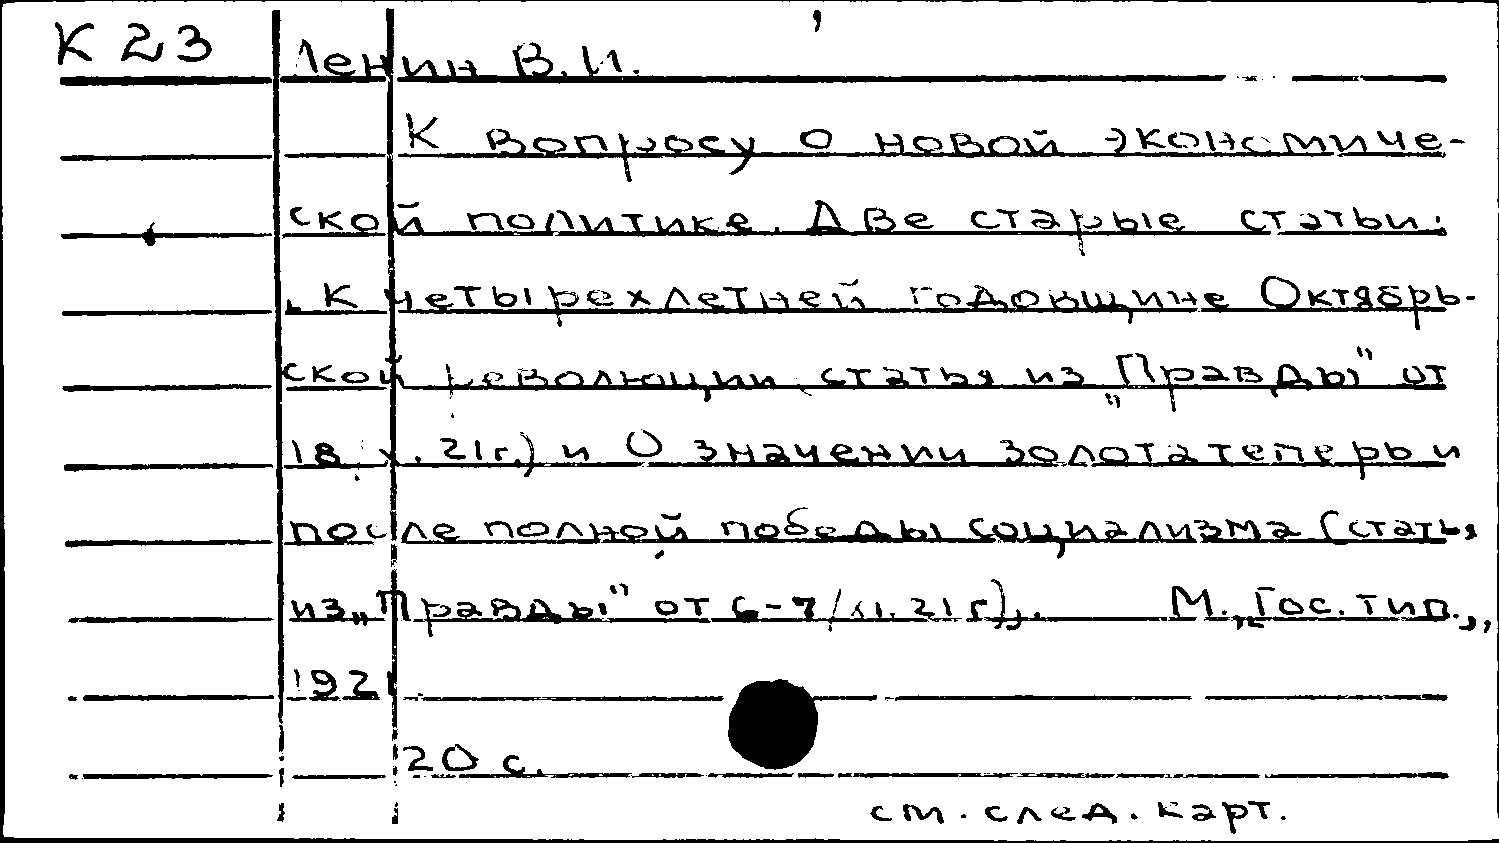 К 23 Ленин В.И.
К вопросу о новой экономиче-
ской политике. Две старые статьи:
„К четырехлетней годовщине Октябрь-
ской революции, статья из „Правды" от
18/X. 21г.) и О значении золота теперь и
после полной победы социализма (статья
из „Правды" от 6-7/XI. 21 г.),. М., „Гос. тип.,,
1921
20 с.
см. след. карт.